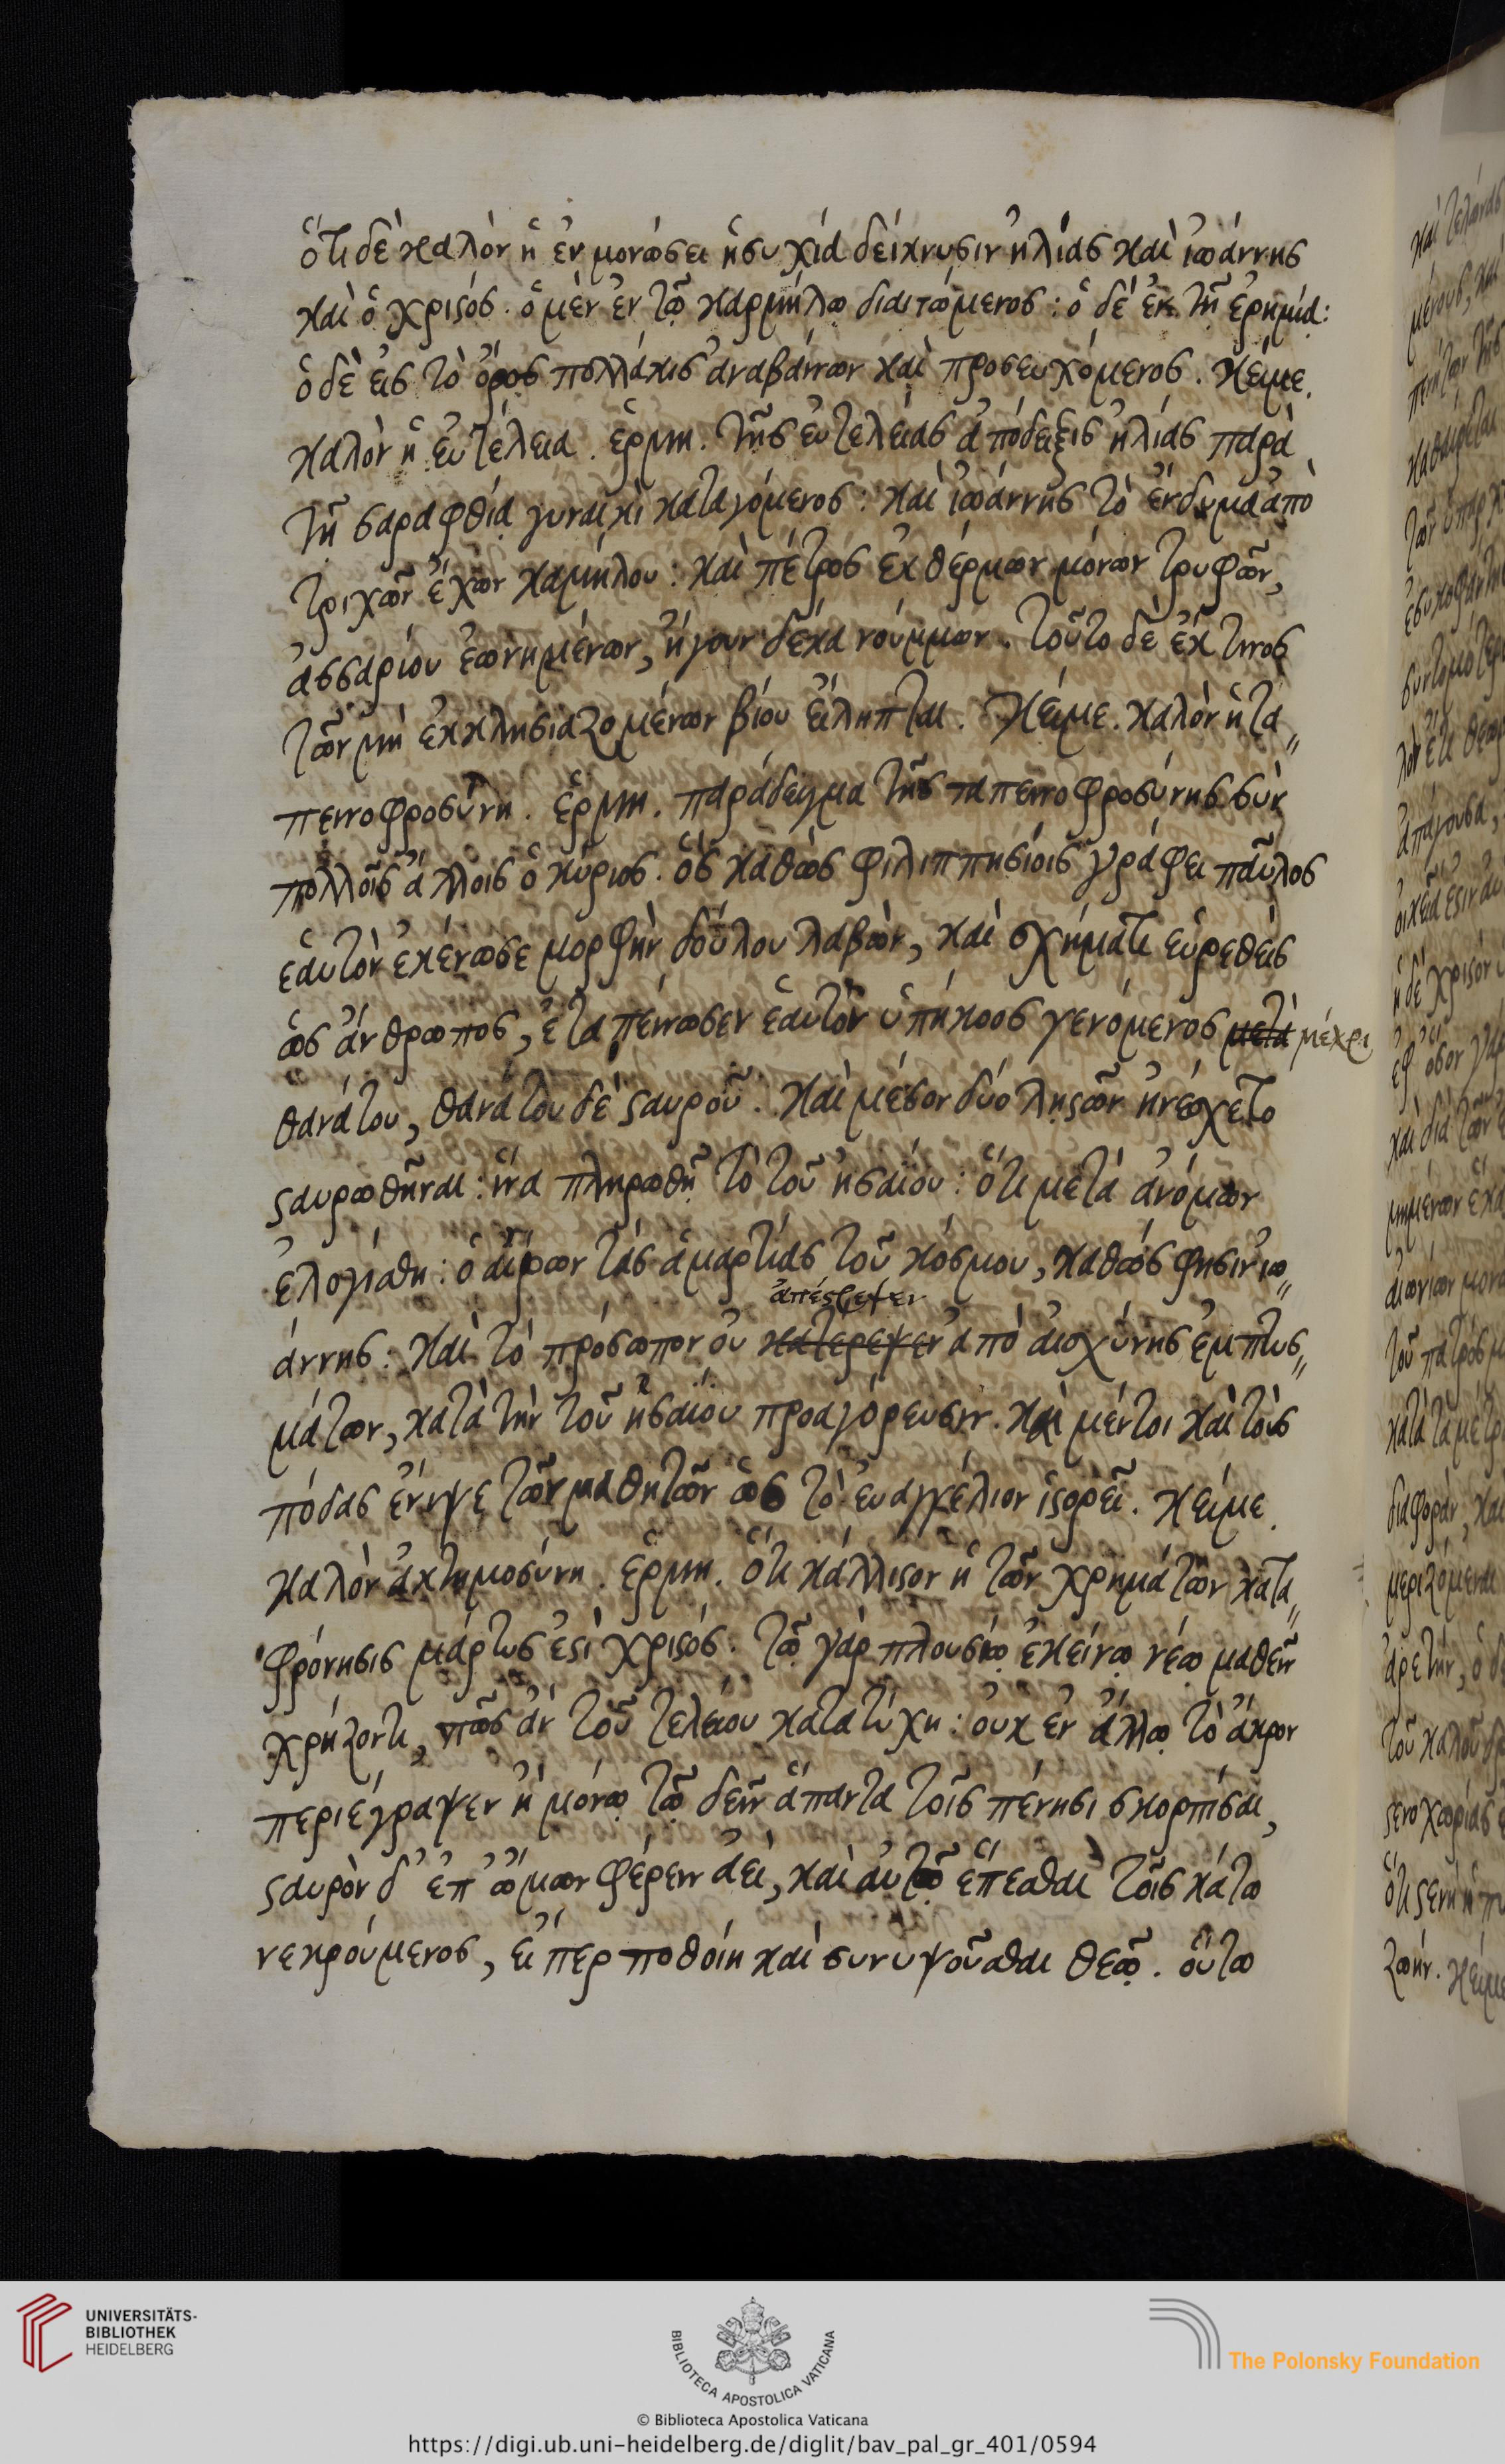 ὅτι δὲ καλὸν ἡ ἐν μονώσει ἡσυχία δείκνυσιν ἠλίας καὶ ἰωάννης
καὶ ὁ χριϛός. ὁ μὲν ἐν τῷ καρμήλῳ διαιτώμενος: ὁ δὲ ἐν τῇ ἐρημίᾳ:
ὁ δὲ εἰς τὸ ὄρος πολλάκις ἀναβαίνων καὶ προσευχόμενος. Κείμε.
καλὸν ἡ εὐτέλεια. ἑρμη. τῆς εὐτελείας ἀπόδειξις ἠλίας παρὰ
τῇ σαραφθίᾳ γυναικὶ καταγόμενος: καὶ ἰωάννης τὸ ἔνδυμα ἀπὸ
τριχῶν ἔχων καμήλου: καὶ πέτρος ἐκ θέρμων μόνων τρυφῶν,
ἀσσαρίου ἐωνημένων, ἤγουν δέκα νούμμων. τοῦτο δὲ ἔκ τινος
τῶν μὴ ἐκκλησιαζομένων βίου εἴληπται. Κείμε. καλὸν ἡ τα〃
πεινοφροσύνη. ἑρμη. παράδειγμα τῆς ταπεινοφροσύνης σὺν
πολλοῖς ἄλλοις ὁ κύριος. ὃς καθὼς φιλιππησίοις γράφει παῦλος
ἑαυτὸν ἐκένωσε μορφὴν δούλου λαβὼν, καὶ σχήματι εὑρεθεὶς
ὡς ἄνθρωπος, ἐταπείνωσεν ἑαυτὸν ὑπήκοος γενόμενος μετὰ μέχρι
θανάτου, θανάτου δὲ ϛαυροῦ. καὶ μέσον δύο ληϛῶν ἠνέσχετο
ϛαυρωθῆναι: ἵνα πληρωθῇ τὸ τοῦ ἠσαίου: ὅτι μετὰ ἀνόμων
ἐλογίσθη: ὁ αἴρων τὰς ἁμαρτίας τοῦ κόσμου, καθώς φησιν ἰω〃
ἀπέϛρεψεν
άννης: καὶ τὸ πρόσωπον οὐ κατέρεψεν ἀπὸ αἰσχύνης ἐμπτυσ〃
μάτων, κατὰ τὴν τοῦ ἠσαίου προαγόρευσιν. καὶ μέντοι καὶ τοὺς
πόδας ἔνιψε τῶν μαθητῶν ὡς τὸ εὐαγγέλιον ἱϛορεῖ. Κείμε.
καλὸν ἀκτημοσύνη. ἑρμη. ὅτι κάλλιϛον ἡ τῶν χρημάτων κατα〃
φρόνησις μάρτυς ἐϛὶ χριϛός. τῷ γὰρ πλουσίῳ ἐκείνῳ νέῳ μαθεῖν
χρῄζοντι, πῶς ἂν τοῦ τελείου κατατύχῃ: οὐκ ἐν ἄλλῳ τὸ ἄκρον
περιέγραψεν ἢ μόνῳ τῷ δεῖν ἅπαντα τοῖς πένησι σκορπίσαι,
ϛαυρὸν δ' ἐπ' ὤμων φέρειν ἀεὶ, καὶ αὐτῷ ἕπεσθαι τοῖς κάτω
νεκρούμενος, εἴπερ ποθοίη καὶ συνυψοῦσθαι θεῷ. οὕτω
UNIVERSITÄTS-
BIBLIOTHEK
HEIDELBERG
BIBLIOTECA APOSTOLICA VATICANA
The Polonsky Foundation
© Biblioteca Apostolica Vaticana
https://digi.ub.uni-heidelberg.de/diglit/bav_pal_gr_401/0594